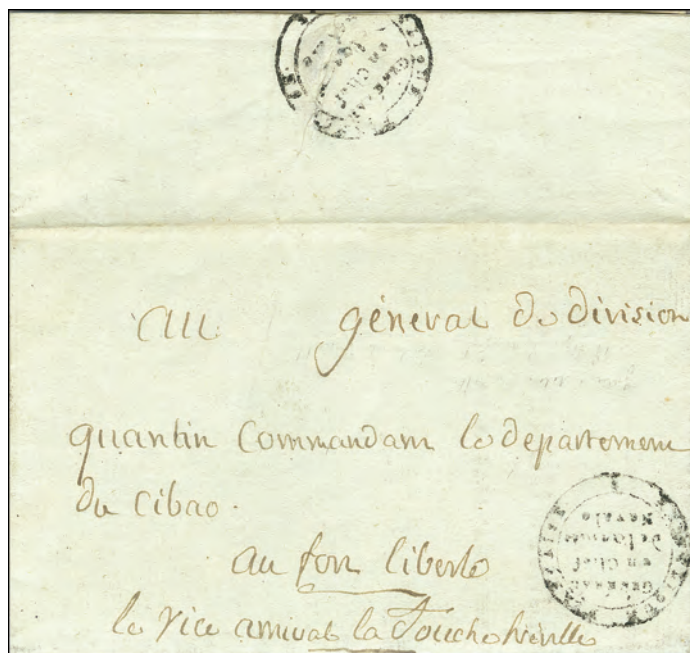 Général
en Chef
au général de division
quantin Commandant le departement
du Cibao.
au fort liberté
le vice amiral la Touche tréville
RÉPUBLIQUE
Général
en Chef
De l'armée
Navale